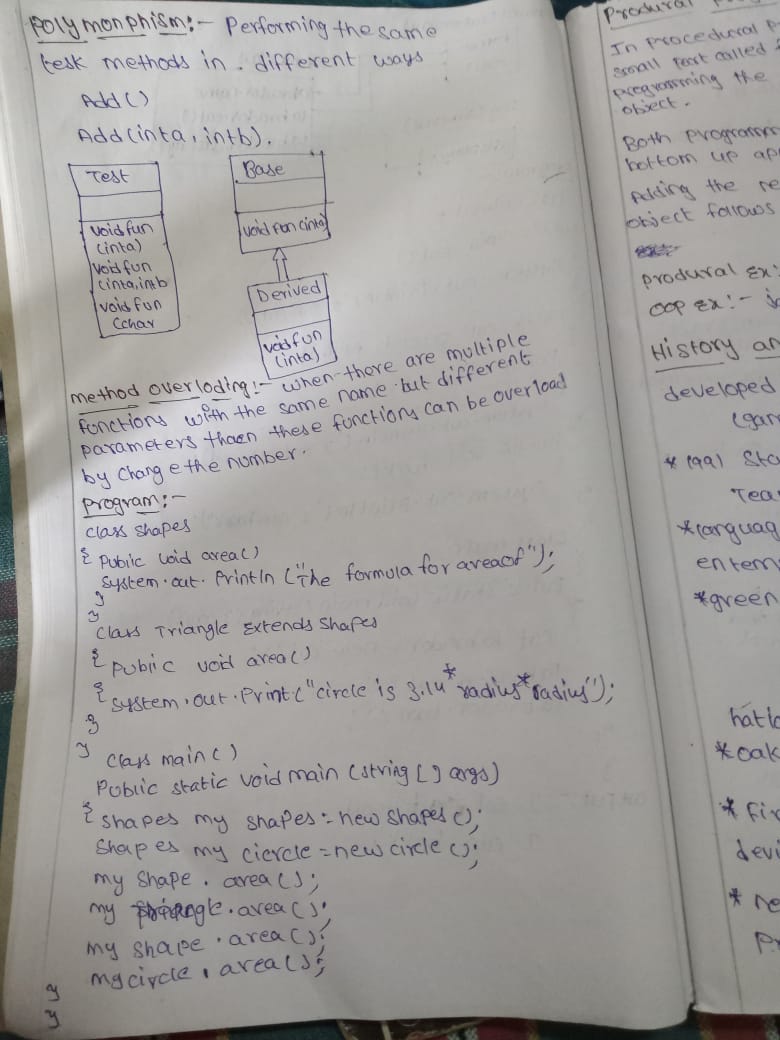 Polymonphism:- Performing the same
tesk methods in . different ways
Add()
Add(inta, intb).
Test
void fun
(inta)
void fun
(inta, intb
void fun
(char
Base
void fun (inta)
Derived
void fun
(inta)
method overloding:- when there are multiple
functions with the same name but different
parameters thaen these functions can be overload
by change the number.
program:-
class shapes
{ Pubic void area()
System.out.Println ("The formula for areaof");
}
}
class Triangle Extends Shapes
{ pubic void area()
{ system.out.Print("circle is 3.14*radius*radius");
}
}
class main()
Public static void main (string [] args)
{ shapes my shapes = new shapes ();
Shapes my ciercle = new circle ();
my shape . area();
my triangle.area();
my shape . area();
mycircle . area();
}
}
Produral
In procedural P
small part called
programming the
object.
Both Program
bottom up ap
Adding the re
object follows
produral Ex:
OOP Ex:-
History an
developed
(gan
* 1991 Sta
Tea
*languag
entem
*green
hatlo
*oak
* fir
devi
* ne
Pr